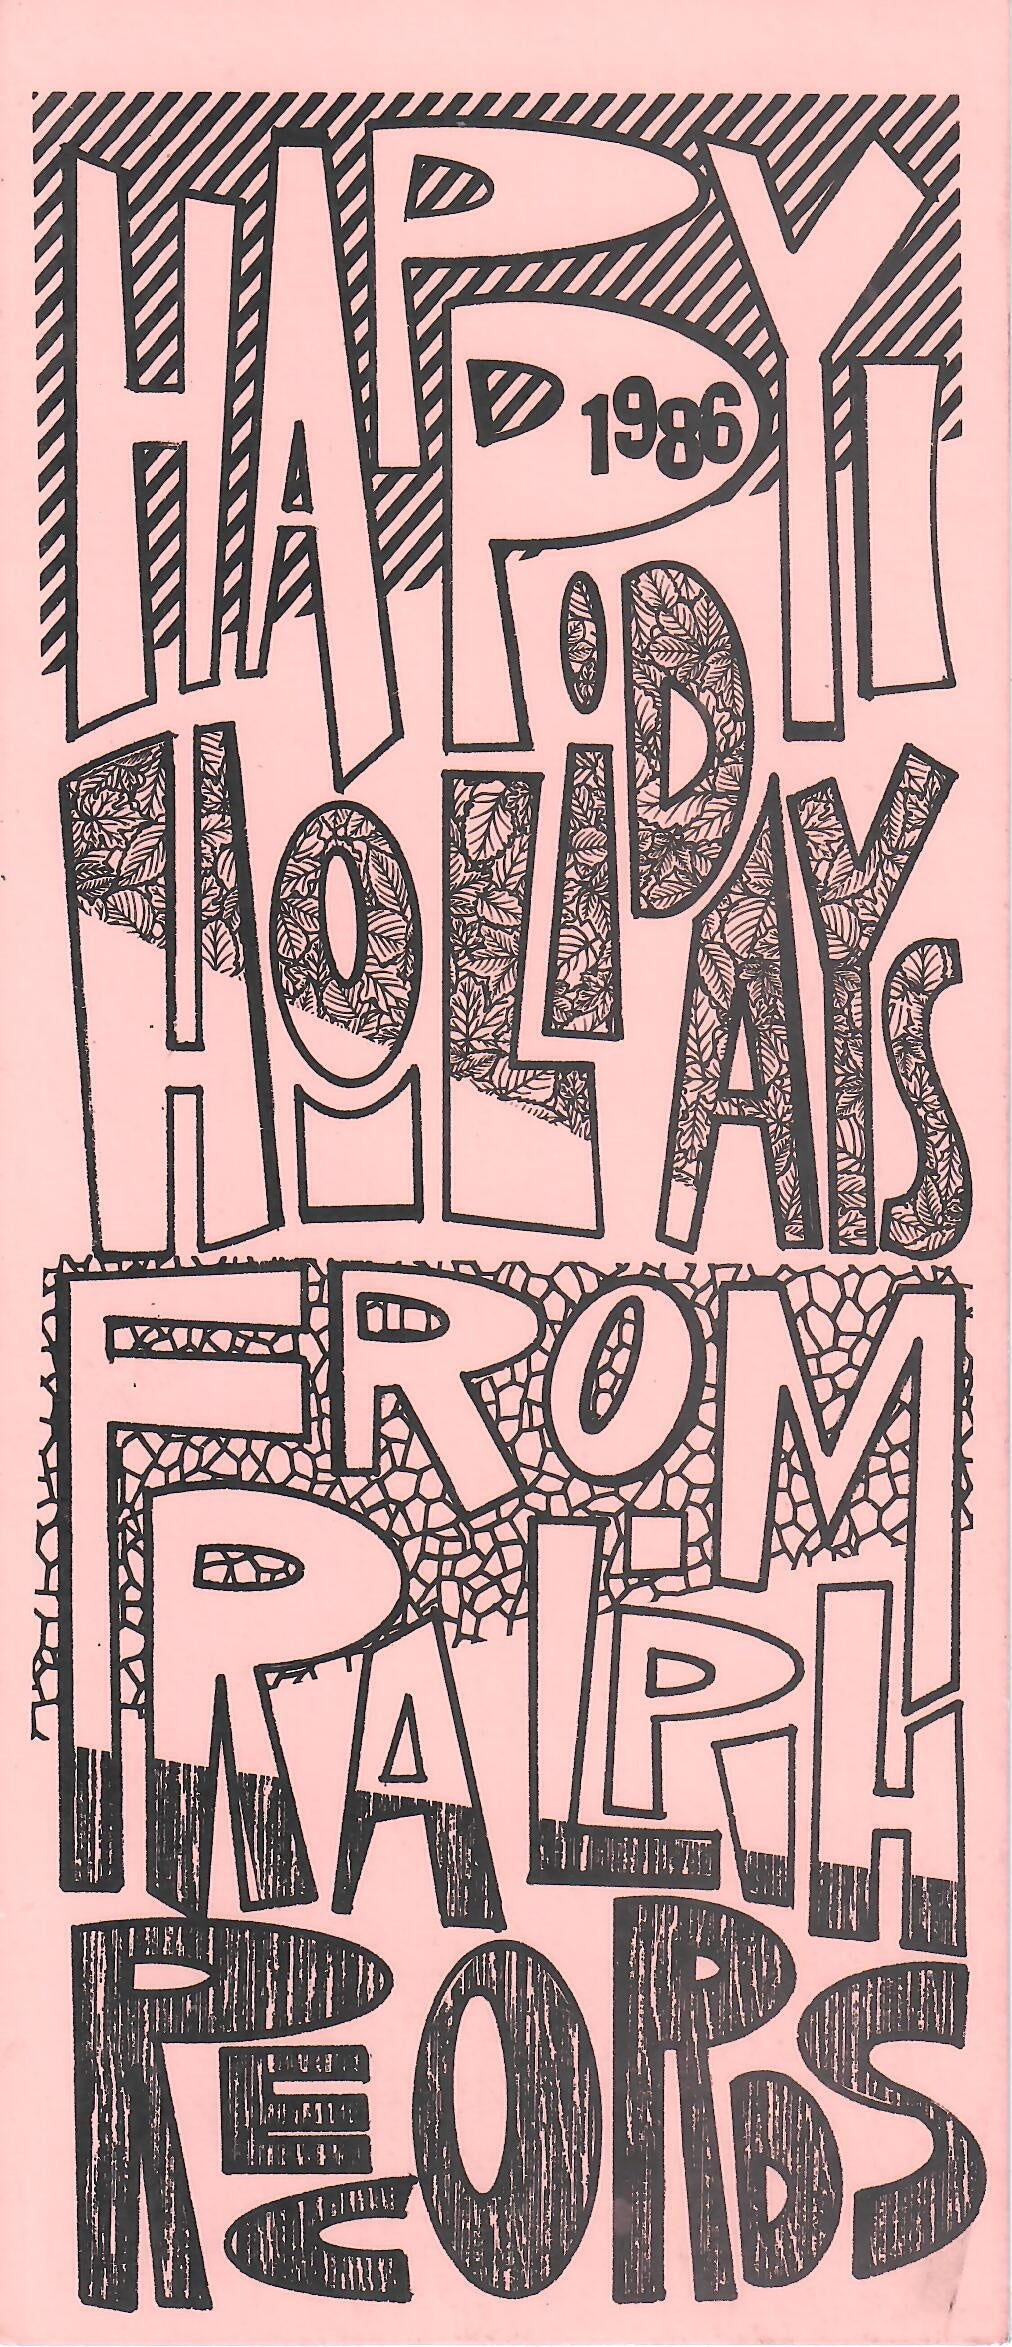 HAPPY
1986
HOLiDAYS
FROM
RALPH
RECORDS